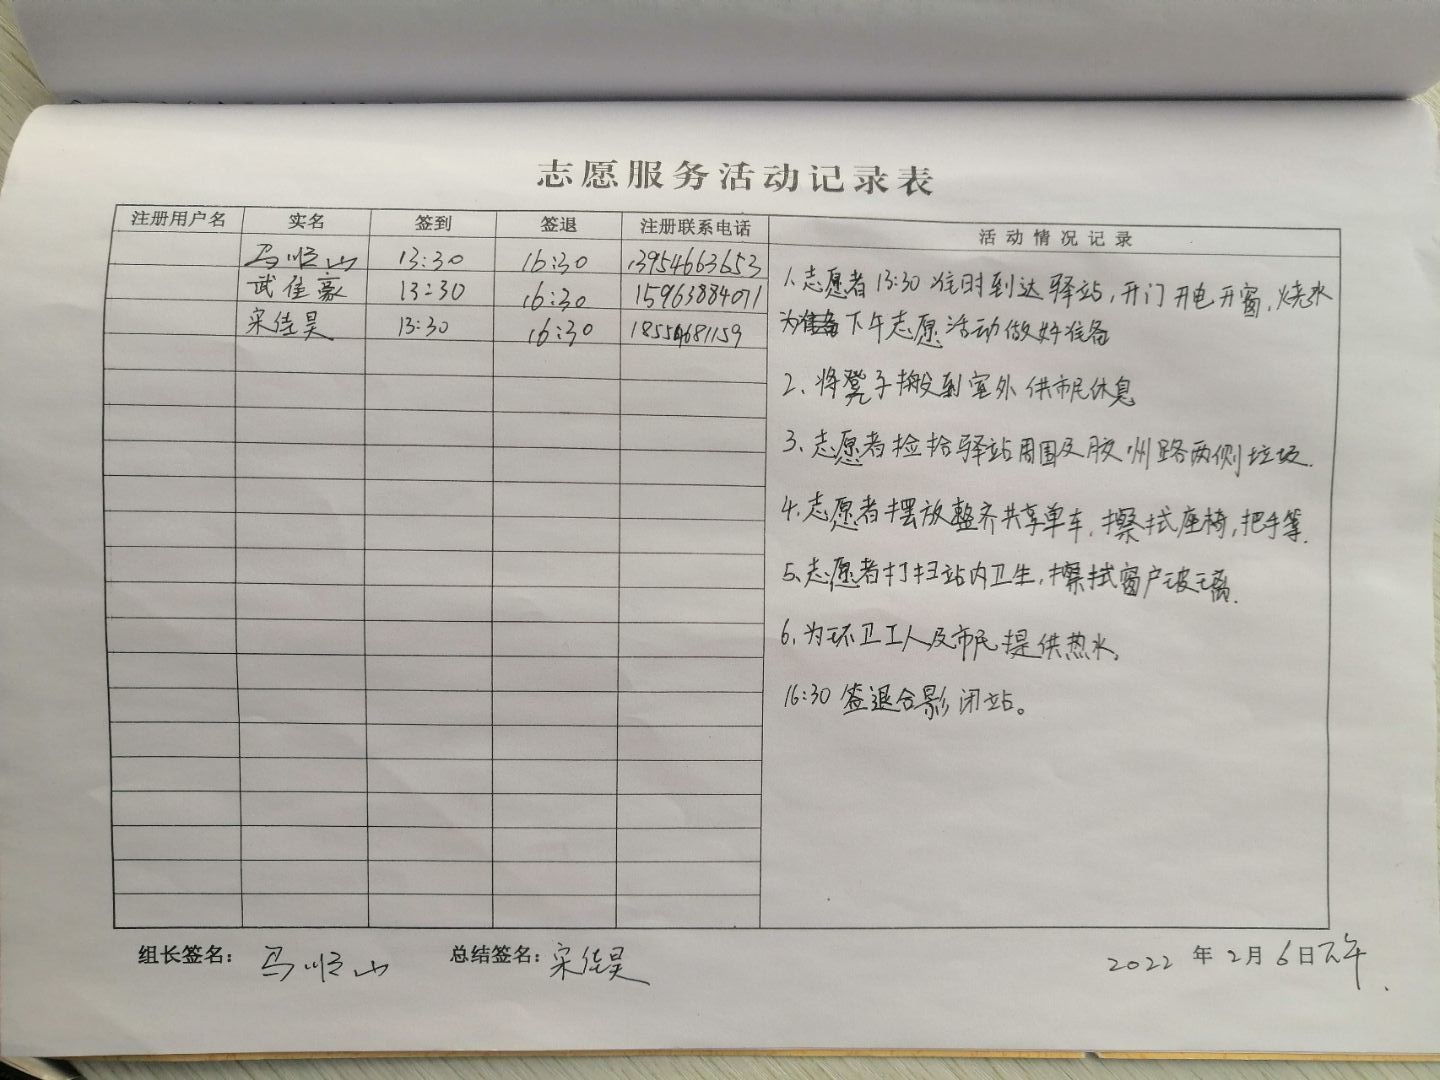 志愿服务活动记录表
注册用户名 实名 签到 签退 注册联系电话 活动情况记录
马顺山 13:30 16:30 13954663653
武佳豪 13:30 16:30 15963884071
宋佳昊 13:30 16:30 18554681159
1、志愿者13:30准时到达驿站,开门开电开窗,烧水
为下午志愿活动做好准备
2、将凳子搬到室外供市民休息
3、志愿者捡拾驿站周围及胶州路两侧垃圾.
4、志愿者摆放整齐共享单车,擦拭座椅,把手等.
5、志愿者打扫站内卫生,擦拭窗户玻璃.
6、为环卫工人及市民提供热水。
16:30签退合影闭站。
组长签名: 马顺山 总结签名: 宋佳昊 2022年2月6日下午.